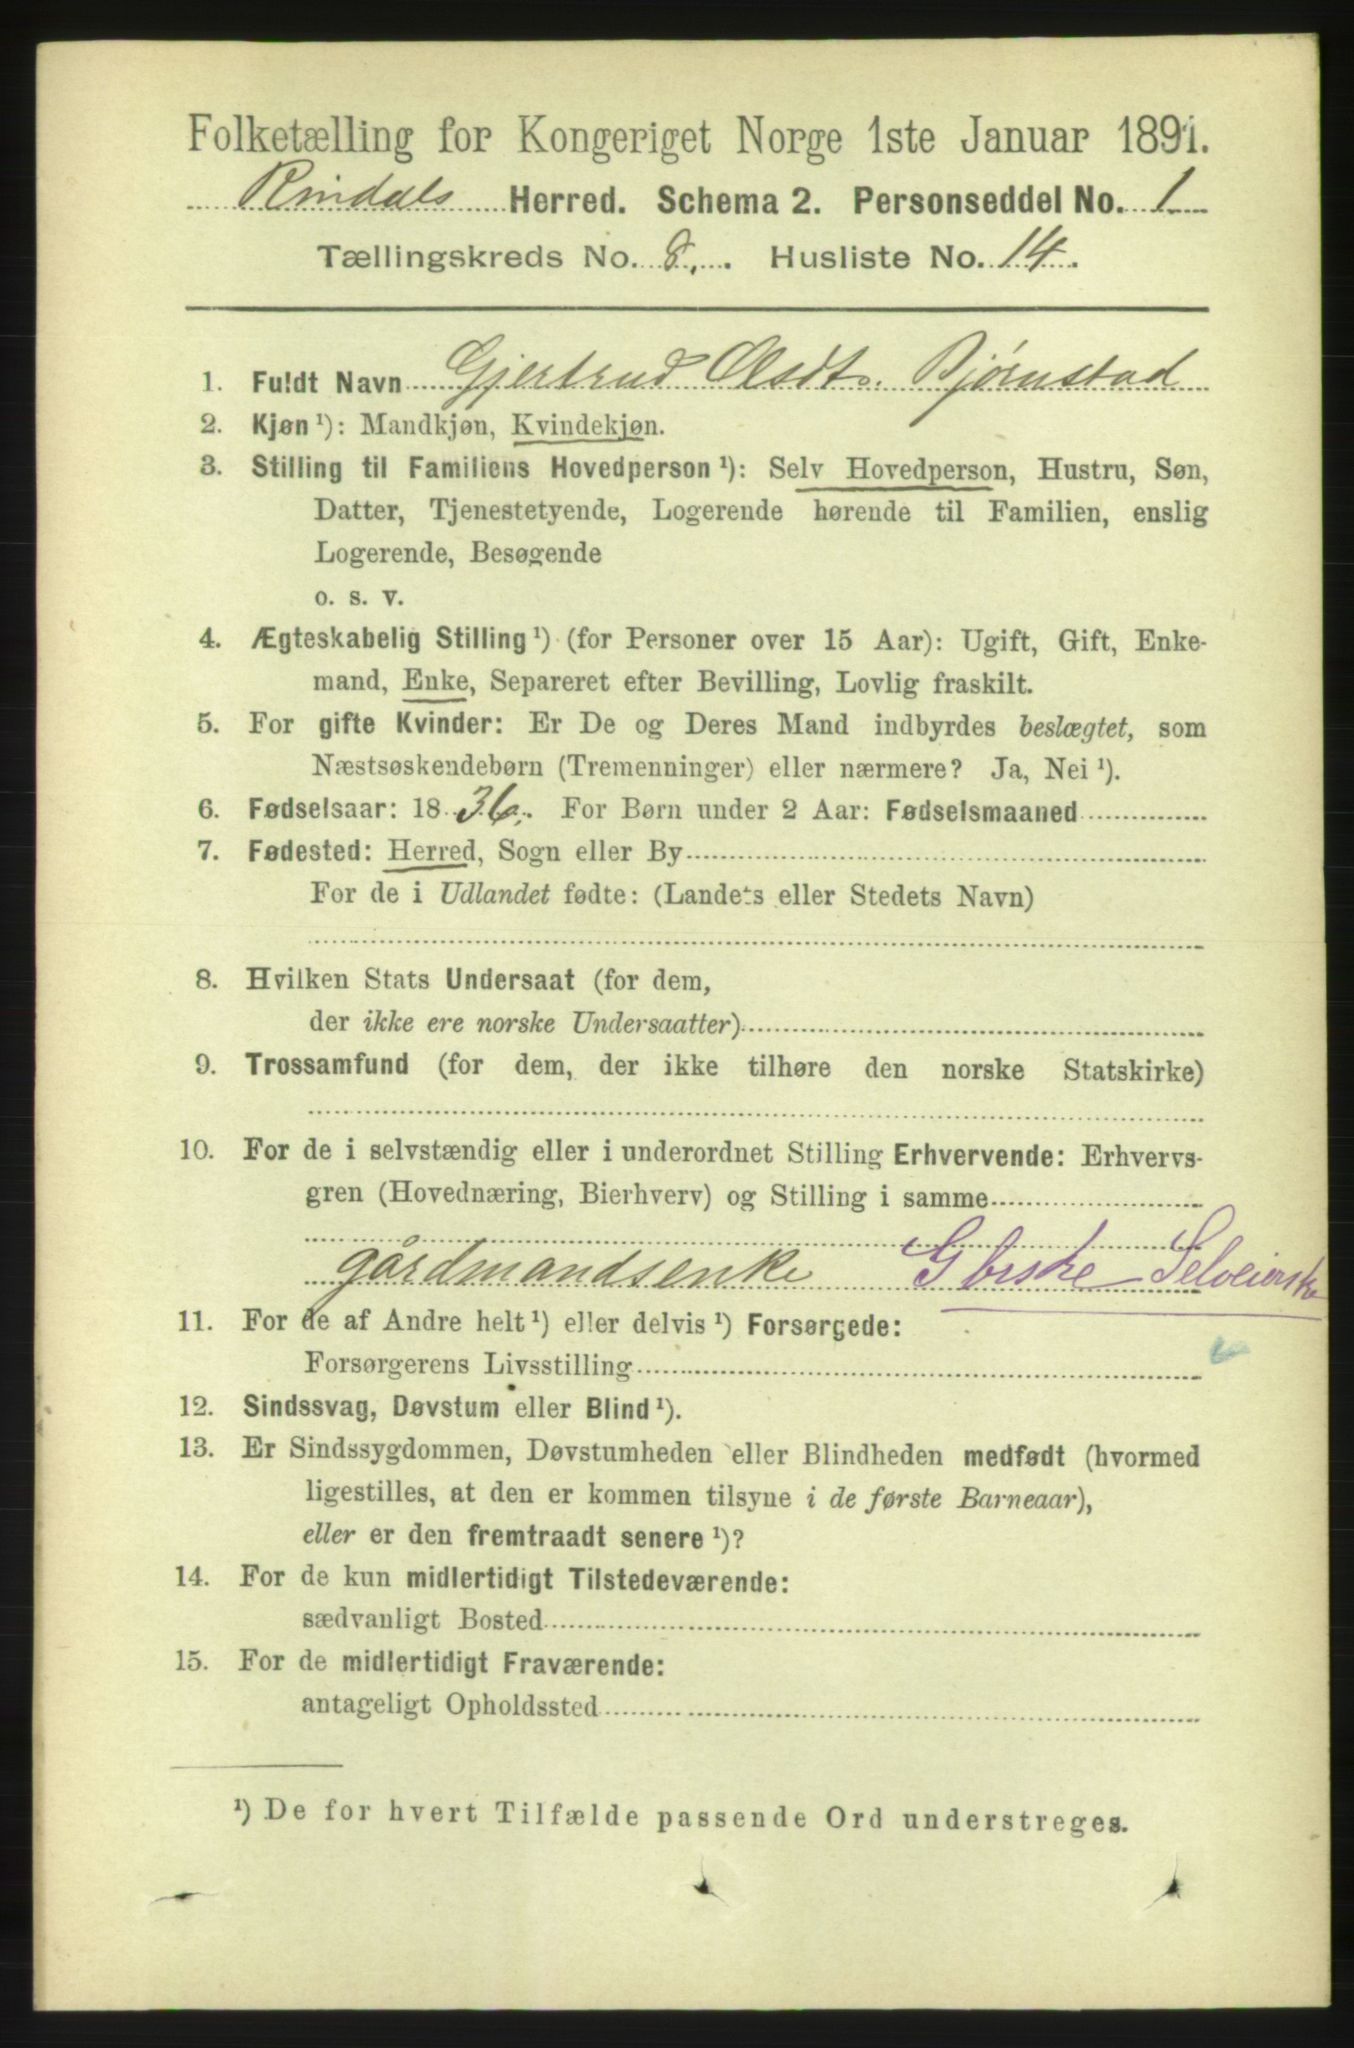 Folketælling for Kongeriget Norge 1ste Januar 1891.
Rindals Herred. Schema 2. Personseddel No. 1
Tællingskreds No. 8. Husliste No. 14.
1. Fuldt Navn Gjertrud Olsdt. Bjørnstad
2. Kjøn ¹): Mandkjøn, Kvindekjøn.
3. Stilling til Familiens Hovedperson ¹): Selv Hovedperson, Hustru, Søn,
Datter, Tjenestetyende, Logerende hørende til Familien, enslig
Logerende, Besøgende
o. s. v.
4. Ægteskabelig Stilling ¹) (for Personer over 15 Aar): Ugift, Gift, Enke-
mand, Enke, Separeret efter Bevilling, Lovlig fraskilt.
5. For gifte Kvinder: Er De og Deres Mand indbyrdes beslægtet, som
Næstsøskendebørn (Tremenninger) eller nærmere? Ja, Nei ¹).
6. Fødselsaar: 1836. For Børn under 2 Aar: Fødselsmaaned
7. Fødested: Herred, Sogn eller By
For de i Udlandet fødte: (Landets eller Stedets Navn)
8. Hvilken Stats Undersaat (for dem,
der ikke ere norske Undersaatter)
9. Trossamfund (for dem, der ikke tilhøre den norske Statskirke)
10. For de i selvstændig eller i underordnet Stilling Erhvervende: Erhvervs-
gren (Hovednæring, Bierhverv) og Stilling i samme
gårdmandsenke Gbrske Selveierske
11. For de af Andre helt ¹) eller delvis ¹) Forsørgede:
Forsørgerens Livsstilling
12. Sindssvag, Døvstum eller Blind ¹).
13. Er Sindssygdommen, Døvstumheden eller Blindheden medfødt (hvormed
ligestilles, at den er kommen tilsyne i de første Barneaar),
eller er den fremtraadt senere ¹)?
14. For de kun midlertidigt Tilstedeværende:
sædvanligt Bosted
15. For de midlertidigt Fraværende:
antageligt Opholdssted
¹) De for hvert Tilfælde passende Ord understreges.